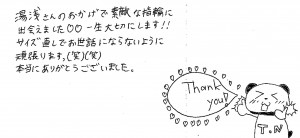 湯浅さんのおかげで素敵な指輪に
出会えました○○一生大切にします!!
サイズ直しでお世話にならないように
頑張ります。(笑)(笑)
本当にありがとうございました。
Thank
you!
T.N